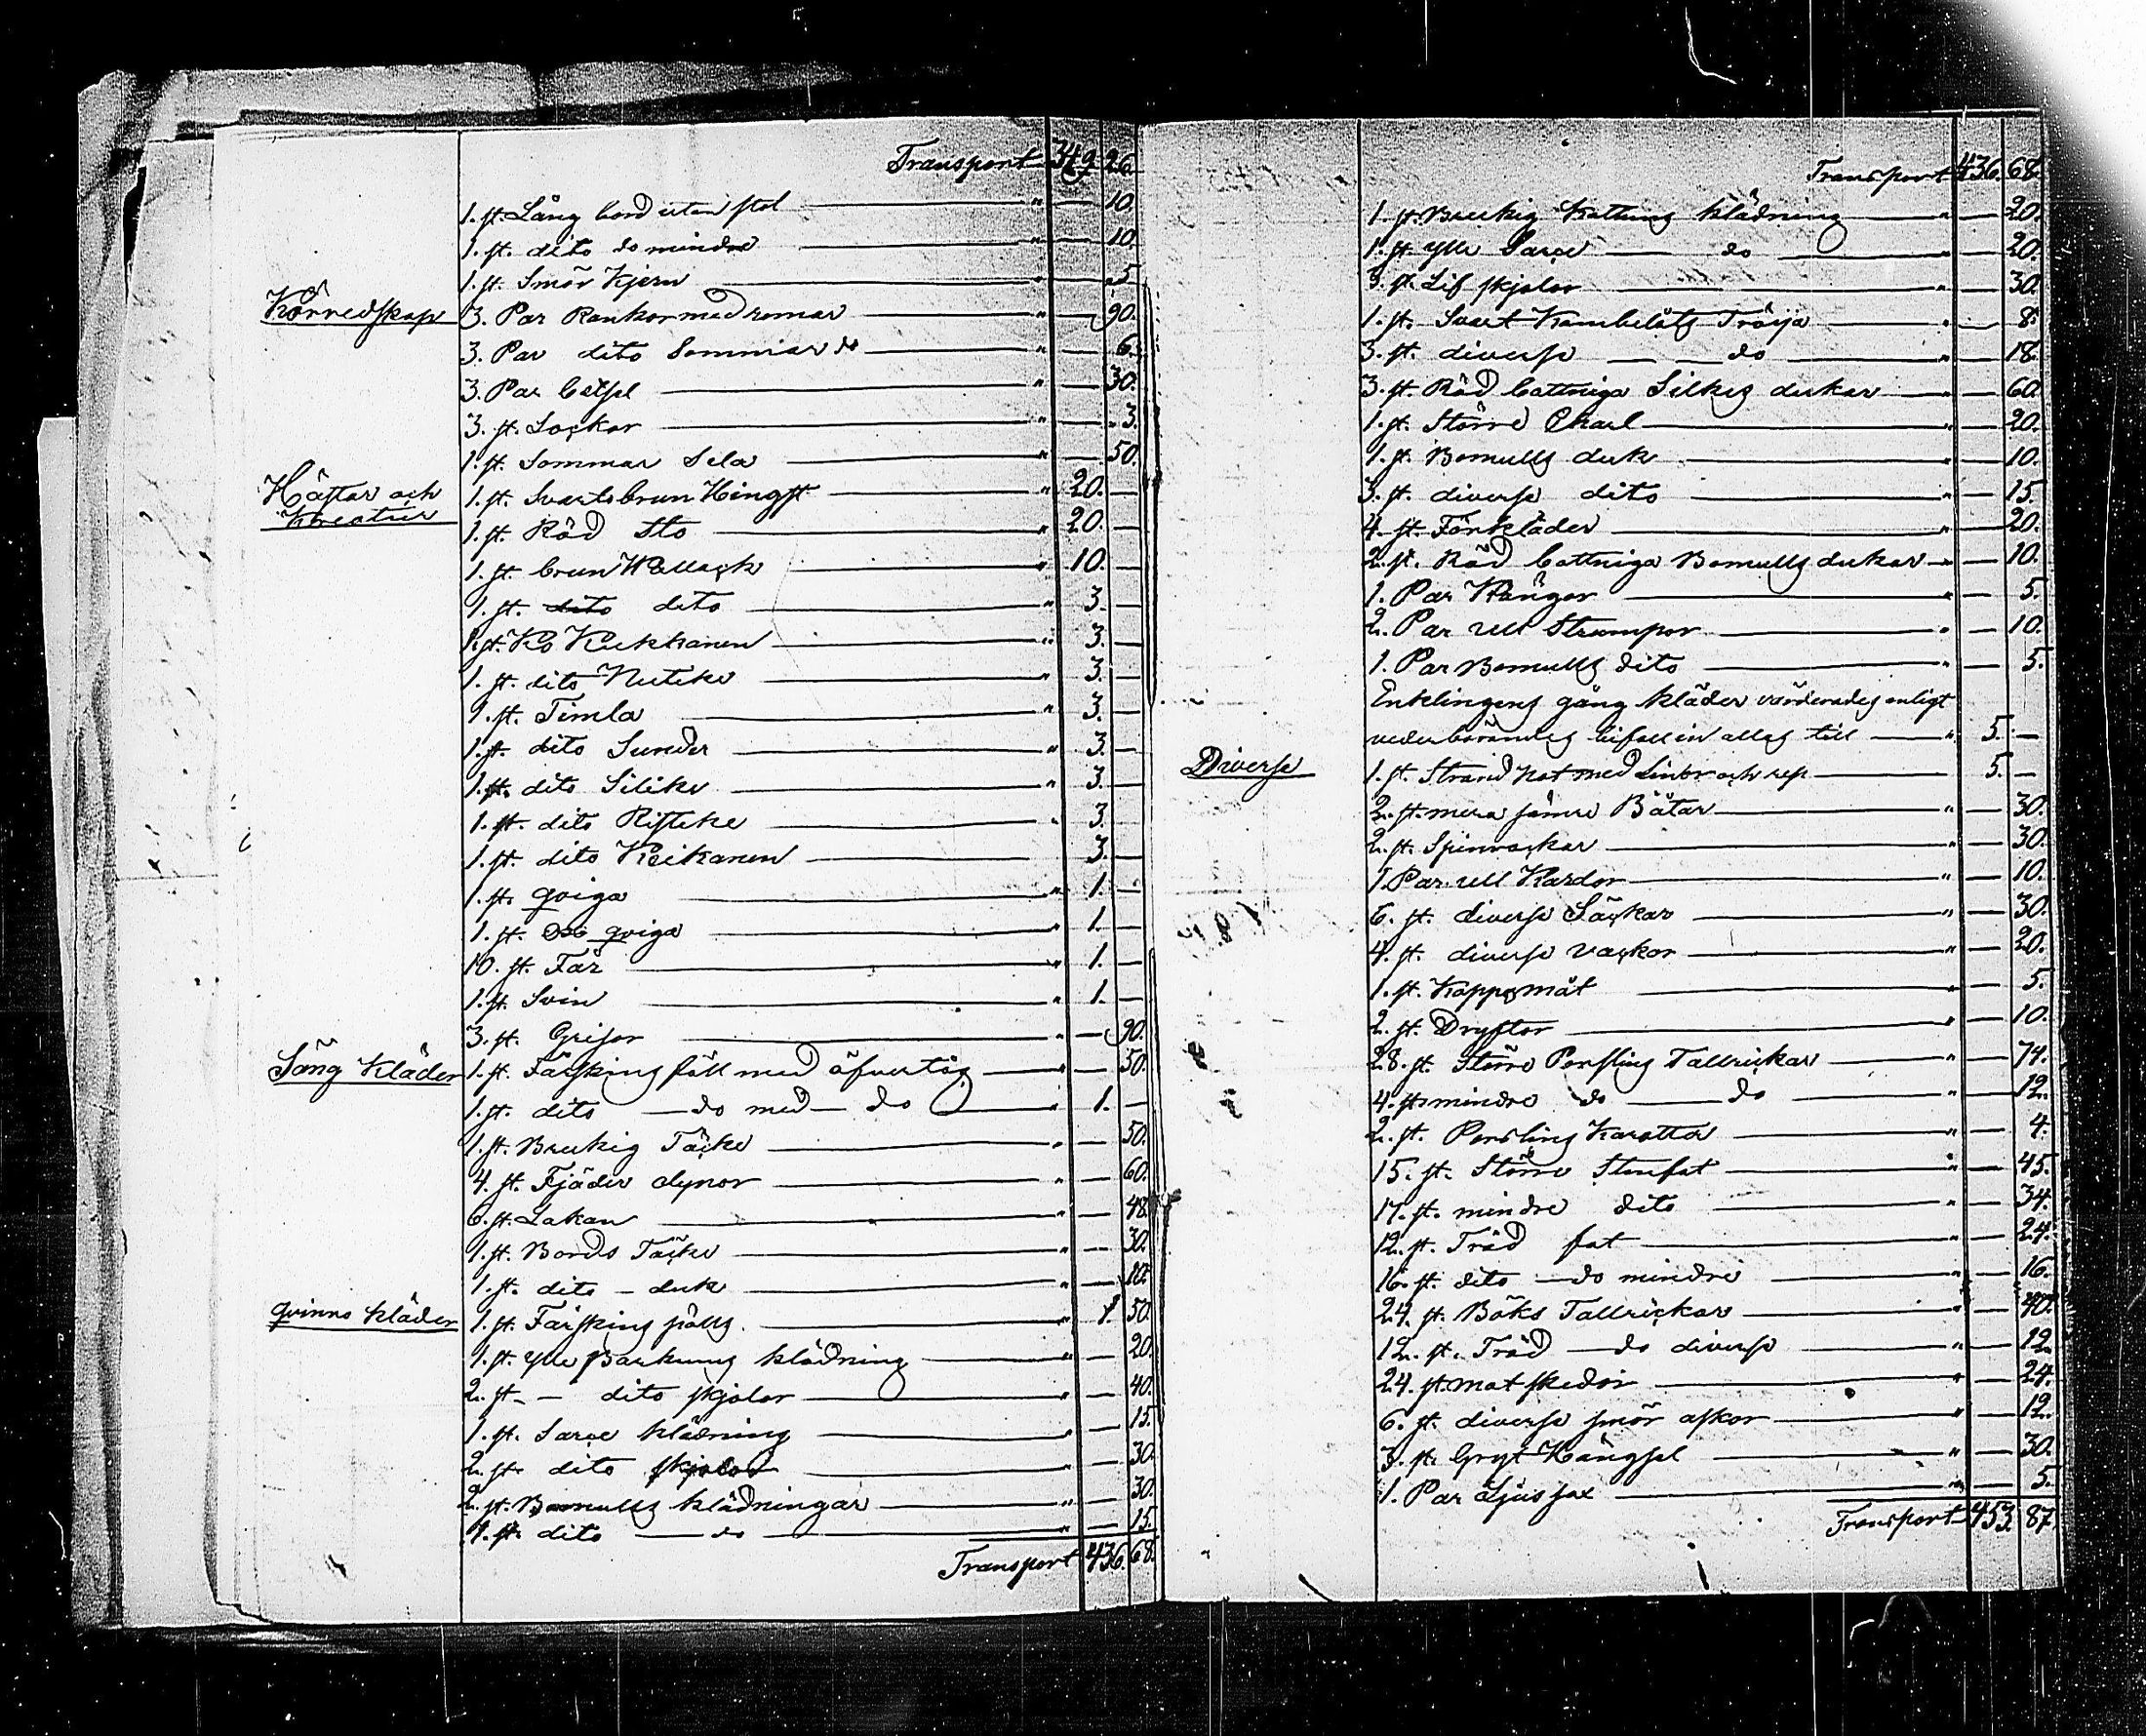 Transport 349. 26.
1. st. Lång bord utan stol " — 10.
1. st. dito do mindre " — 10.
1. st. Smör Kjern " — 5.
Körredskap 3. Par Rankor med remar " — 90.
3. Par dito Sommar do " — 6.
3. Par betsel " — 30.
3. st. Lockor " — 3.
1. st. Sommar Sela " — 50.
Hästar och 1. st. Svartsbrun Hingst " 20. —
Kreatur 1. st. Röd Sto " 20. —
1. st. brun Wallack " 10. —
1. st. dito dito " 3. —
1. st. Ko Kukkanen " 3. —
1. st. dito Nutike " 3. —
1. st. Timla " 3. —
1. st. dito Sunder " 3. —
1. st. dito Silike " 3. —
1. st. dito Ristike " 3.
1. st. dito Keikanen 3. —
1. st. qviga " 1. —
1. st. qviga " 1. —
10. st. Får " 1. —
1. st. Svin " 1. —
3. st. Grisor " — 90.
Säng Kläder 1. st. Fårskins fäll med öfvertåg " — 50.
1. st. dito — do med — do " 1. —
1. st. Brukig Täcke " — 50.
4. st. Fjäder dynor " — 60.
6. st. Lakan " — 48.
1. st. Bords Täcke " — 30.
1. st. dito — duk " — 10.
qvinns kläder 1. st. Fårskins päls " 1. 50.
1. st. Ylle klädning " — 20.
2. st. — dito skjolor " — 40.
1. st. Sarge klädning " — 15.
2. st. dito skjolor " — 30.
2. st. Bomulls klädningar " — 30.
1. st. dito — do " — 15.
Transport 436. 68.
Transport 436. 68.
1. st. Brukig Kattuns klädning " — 20.
1. st. Ylle Sarge — do — 20.
3. st. Lif skjolor " — 30.
1. st. Svart Kambelåts Tröija " — 8.
3. st. diverse — do " — 18.
3. st. Röd bottniga Silkes dukar " — 60.
1. st. Större Charl " — 20.
1. st. Bomulls duk " — 10.
3. st. diverse dito " — 15.
4. st. Förkläder " — 20.
2. st. Röd bottniga Bomulls dukar " — 10.
1. Par Kängor " — 5.
2. Par ull Strumpor " — 10.
1. Par Bomulls dito " — 5.
Enklingens gång kläder värderades enligt
vederbörandes till " 5. —
Diverse 1. st. Strand Not med Linor och rep 5. —
2. st. mera sämre Båtar " — 30.
2. st. Spinrockar " — 30.
1. Par ull Kardor " — 10.
6. st. diverse Säckar " — 30.
4. st. diverse vackor " — 20.
1. st. Kappemåt — 5.
2. st. Dryftor " — 10.
28. st. Större Porsling Tallrickar " — 74.
4. st. mindre do — do " — 12.
2. st. Porsling Karotter " — 4.
15. st. Större Stenfat " — 45.
17. st. mindre dito " — 34.
12. st. Träd fat " — 24.
16. st. dito — do mindre " — 16.
24. st. Böks Tallrickar " — 40.
12. st. Träd — do diverse " — 12.
24. st. mat skedor " — 24.
6. st. diverse smör askor " — 12.
3. st. Gryt Hängsel " — 30.
1. Par Ljus sax " — 5.
Transport 453. 87.